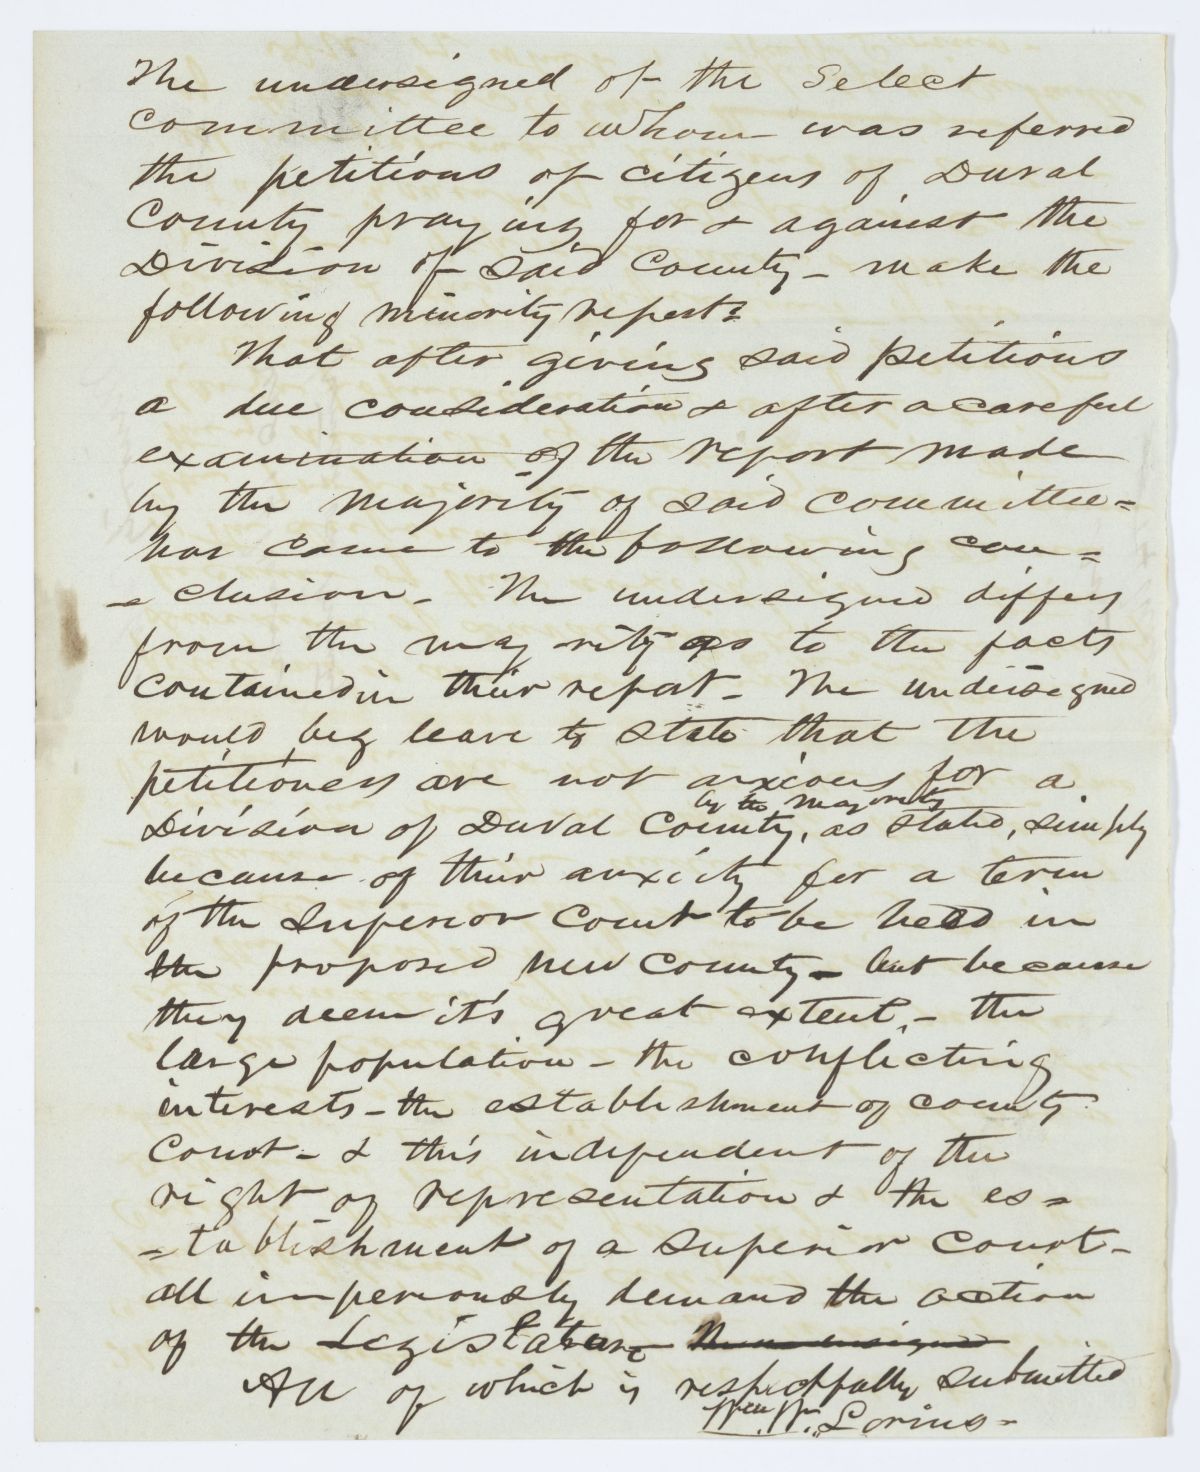 The undersigned of the Select
Committee to whom was referred
the petitions of citizens of Duval
County praying for & against the
Division of said County - make the
following minority report:
That after giving said petitions
a due consideration & after a careful
examination of the report made
by the majority of said committee =
has come to the following con =
= clusion - The undersigned differs
from the majority as to the facts
contained in their report - The undersigned
would beg leave to state that the
petitioners are not anxious for a
by the majority
Division of Duval County, as stated, simply
because of their anxiety for a term
of the Superior Court to be held in
the proposed new County - but because
they deem it's great extent, - the
large population - the conflicting
interests - the establishment of county
Court - & this independent of the
right of representation & the es =
= tablishment of a Superior Court -
all imperiously demand the action
of the Legislature The undersigned
All of which is respectfully submitted
Wm. W. Loring -